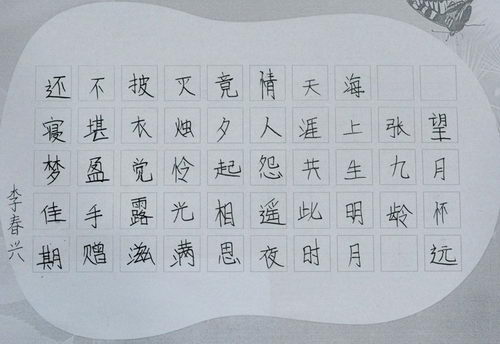 望月杯远
张九龄
海上生明月
天涯共此时
情人怨遥夜
竟夕起相思
灭烛怜光满
披衣觉露滋
不堪盈手赠
还寝梦佳期
李春兴